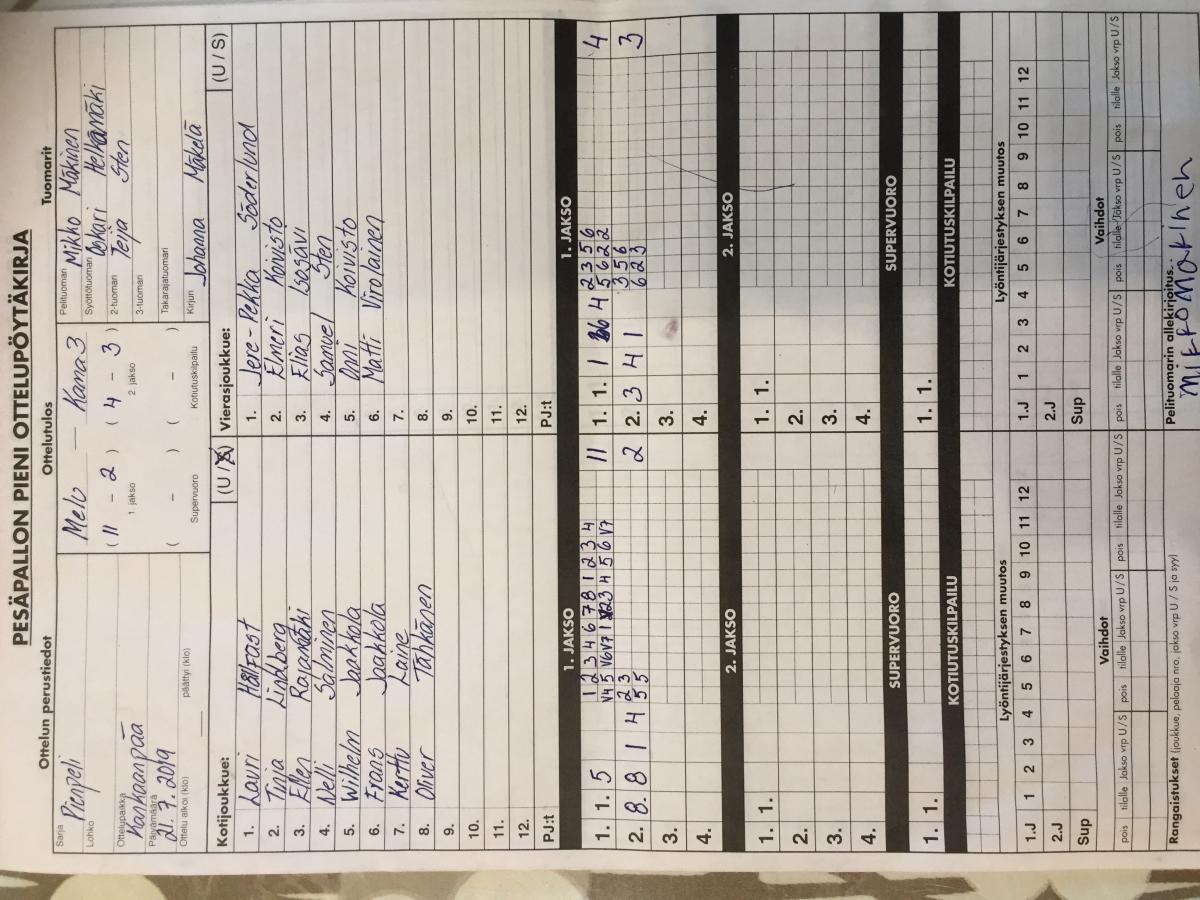 PESÄPALLON PIENI OTTELUPÖYTÄKIRJA
Ottelun perustiedot
Ottelutulos
Tuomarit
Sarja Pienpeli
Lohko
Ottelupaikka
Kankaanpää
Päivämäärä
21.7.2019
Ottelu alkoi (klo) päättyi (klo)
Melu — Kama 3
( 11 - 2 ) ( 4 - 3 )
1 jakso 2 jakso
( - ) ( - )
Supervuoro Kotiutuskilpailu
Pelituomari Mikko Mäkinen
Syöttötuomari Oskari Helkamäki
2-tuomari Teija Sten
3-tuomari
Takarajatuomari
Kirjuri Johanna Mäkelä
Kotijoukkue: (U / S)
1. Lauri Hällfast
2. Tuija Lindberg
3. Ellen Rajamäki
4. Nelli Salminen
5. Wilhelm Jaakkola
6. Frans Jaakkola
7. Kerttu Laine
8. Oliver Tähkänen
9.
10.
11.
12.
PJ:t
Vierasjoukkue: (U / S)
1. Jere-Pekka Söderlund
2. Elmeri Koivisto
3. Elias Isosävi
4. Samuel Sten
5. Oni Koivisto
6. Matti Virolainen
7.
8.
9.
10.
11.
12.
PJ:t
1. JAKSO
1. 1. 5 1 2 3 4 6 7 8 1 2 3 4 11
2. 8. 8 1 4 2 3 2
5 5
3.
4.
1. JAKSO
1. 1. 1 4 2 3 5 6 4
5 6 2 2
2. 3 4 1 3 5 6 3
6 2 3
3.
4.
2. JAKSO
1. 1.
2.
3.
4.
2. JAKSO
1. 1.
2.
3.
4.
SUPERVUORO
1. 1.
SUPERVUORO
1. 1.
KOTIUTUSKILPAILU
KOTIUTUSKILPAILU
Lyöntijärjestyksen muutos
1.J 1 2 3 4 5 6 7 8 9 10 11 12
2.J
Sup
Lyöntijärjestyksen muutos
1.J 1 2 3 4 5 6 7 8 9 10 11 12
2.J
Sup
Vaihdot
pois tilalle Jakso vrp U/S pois tilalle Jakso vrp U/S pois tilalle Jakso vrp U/S
Vaihdot
pois tilalle Jakso vrp U/S pois tilalle Jakso vrp U/S pois tilalle Jakso vrp U/S
Rangaistukset (joukkue, pelaaja nro, jakso vrp U / S ja syy)
Pelituomarin allekirjoitus:
Mikko Mäkinen